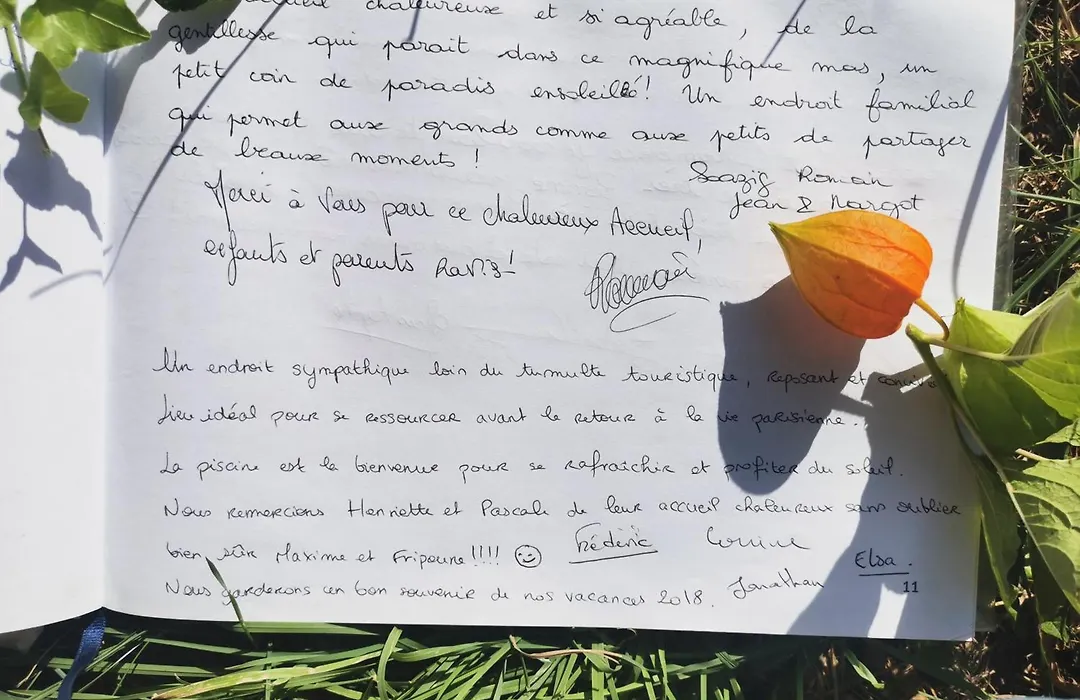 accueil chaleureux et si agréable, de la
gentillesse qui parait dans ce magnifique mas, un
petit coin de paradis ensoleillé! Un endroit familial
qui permet aux grands comme aux petits de partager
de beaux moments !
Soazig Romain
Jean & Margot
Merci à Vous pour ce chaleureux Accueil,
enfants et parents Ravis !
Un endroit sympathique loin du tumulte touristique, reposant et
Lieu idéal pour se ressourcer avant le retour à la vie parisienne..
La piscine est la bienvenue pour se rafraichir et profiter du soleil.
Nous remercions Henriette et Pascale de leur accueil chaleureux sans oublier
bien sûr Maxime et Fripoune!!!! 😉 Frédéric Corinne
Elsa.
Nous garderons un bon souvenir de nos vacances 2018. Jonathan
11